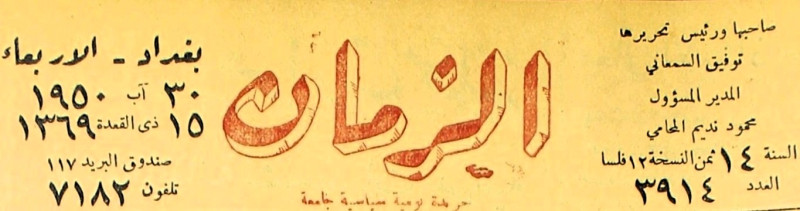 صاحبها ورئيس تحريرها
توفيق السمعاني
المدير المسؤول
محمود نديم المحامي
السنة ١٤ ثمن النسخة ١٢ فلسا
العدد ٣٩١٤
الزمان
جريدة يومية سياسية جامعة
بغداد - الاربعاء
٣٠ آب ١٩٥٠
١٥ ذى القعدة ١٣٦٩
صندوق البريد ١١٧
تلفون ٧١٨٢